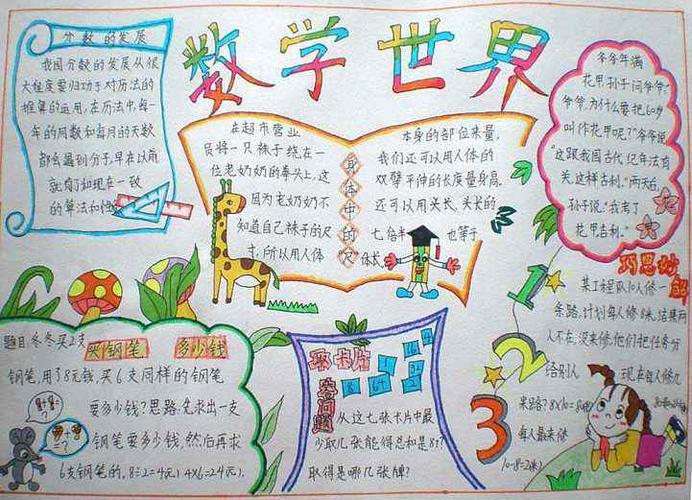 数学世界
分数的发展
我国分数的发展从很
大程度要归功于对历法的
推算的运用,在历法中,每一
年的周数和每月的天数
都会遇到分子,早在以前
就有了和现在一致
的算法和
在超市营业
员将一只袜子绕在一
位老奶奶的拳头上,这
因为老奶奶不
知道自己袜子的尺
寸,所以用人体
身体中的尺
本身的部位来量,
我们还可以用人体的
双臂平伸的长度量身高,
还可以用头长,头长的
七倍半 也等于
体长
爷爷年满
花甲,孙子问爷爷:“
爷爷,为什么要把60岁
叫作花甲呢?”爷爷说:
“这跟我国古代纪年法有
关,这样古利。”两天后,
孙子说:“我考了
花甲吉利。”
巧思妙解
某工程队10人修一
条路,计划每人修8米,结果两
人不在,没来修,他们把任务分
给别人 现在每人修几
米路? 8×10=80
每人最来修
10-8=2
1
2
3
题目:冬冬买2支
买钢笔 多少钱
钢笔,用了8元钱,买6支同样的钢笔
要多少钱?思路,先求出一支
钢笔要多少钱,然后再求
6支钢笔的。8÷2=4(元) 4×6=24(元)。
取卡片
答问题
8 64
从这七张卡片中最
少取几张能得总和是87?
取得是哪几张牌?